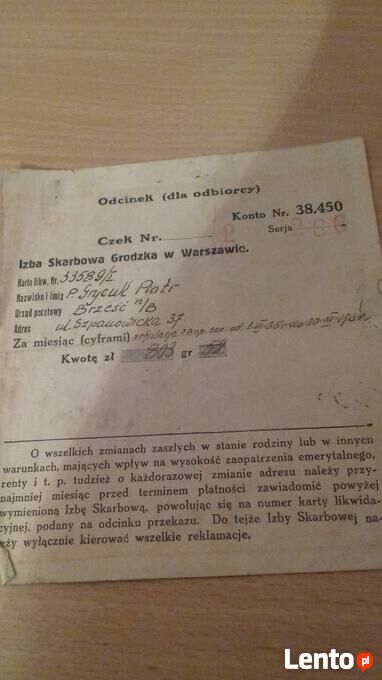 Odcinek (dla odbiorcy)
Konto Nr. 38.450
Czek Nr. 2 Serja 206
Izba Skarbowa Grodzka w Warszawie.
Karta likw. Nr. 33589/I
Nazwisko i imię P. Grycuk Piotr
Urząd pocztowy Brześć n/B
Adres ul. Szpanowicka 37
Za miesiąc (cyframi)
Kwotę zł 803 gr 52
O wszelkich zmianach zaszłych w stanie rodziny lub w innych
warunkach, mających wpływ na wysokość zaopatrzenia emerytalnego,
renty i t. p. tudzież o każdorazowej zmianie adresu należy przy-
najmniej miesiąc przed terminem płatności zawiadomić powyżej
wymienioną Izbę Skarbową, powołując się na numer karty likwida-
cyjnej, podany na odcinku przekazu. Do tejże Izby Skarbowej na-
eży wyłącznie kierować wszelkie reklamacje.
Lento.pl